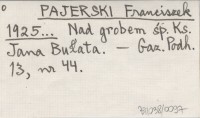 PAJERSKI Franciszek
1925... Nad grobem śp. Ks.
Jana Bułata. — Gaz. Podh.
13, nr 44.